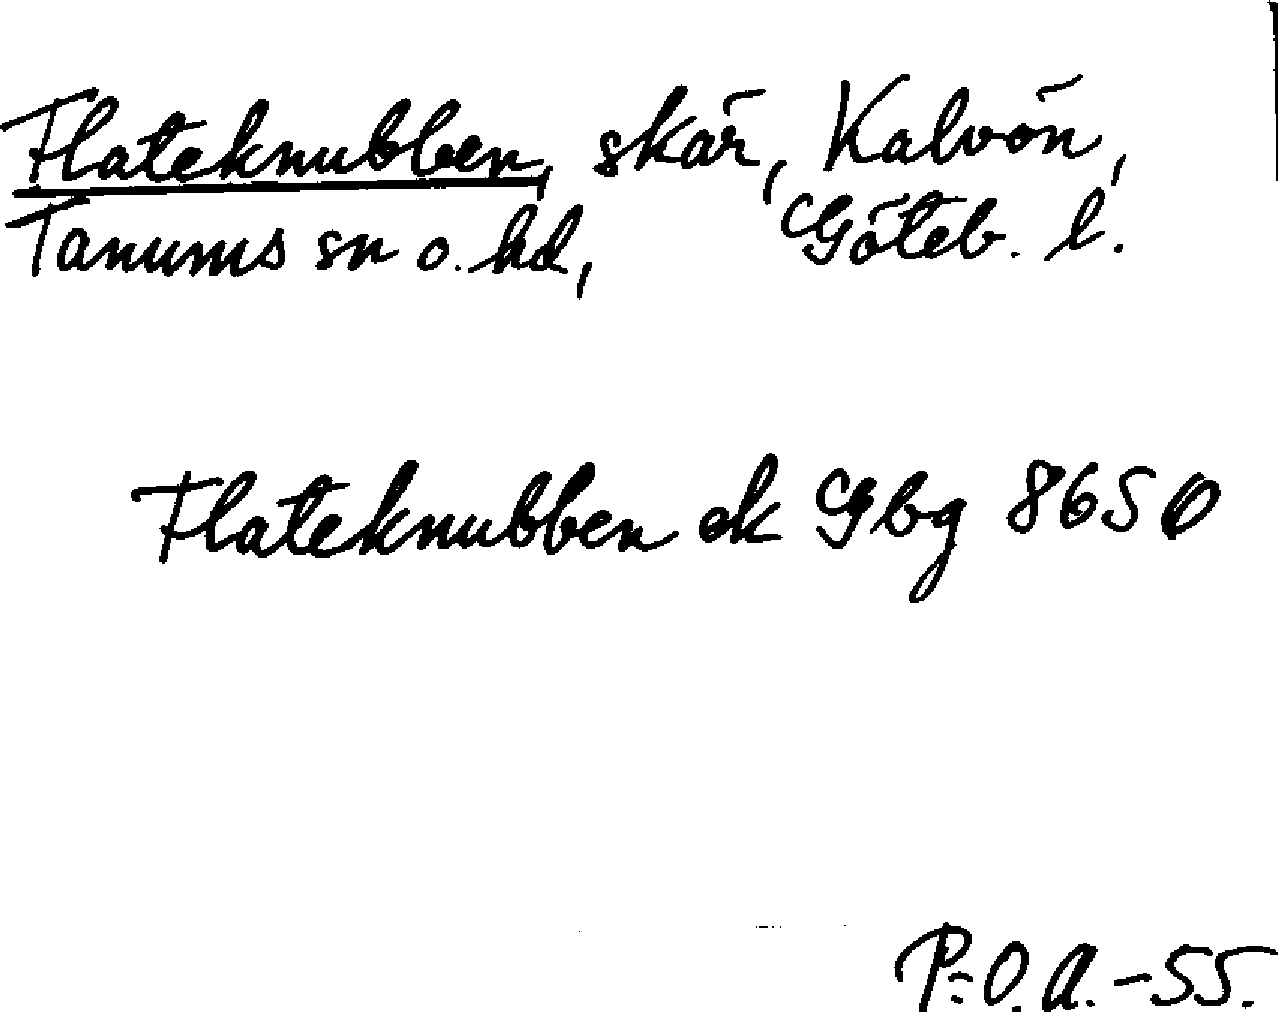 Flateknubben, skär, Kalvön,
Tanums sn o. hd, Göteb. l.
Flateknubben ek Gbg 8650
P:O.A.-55.